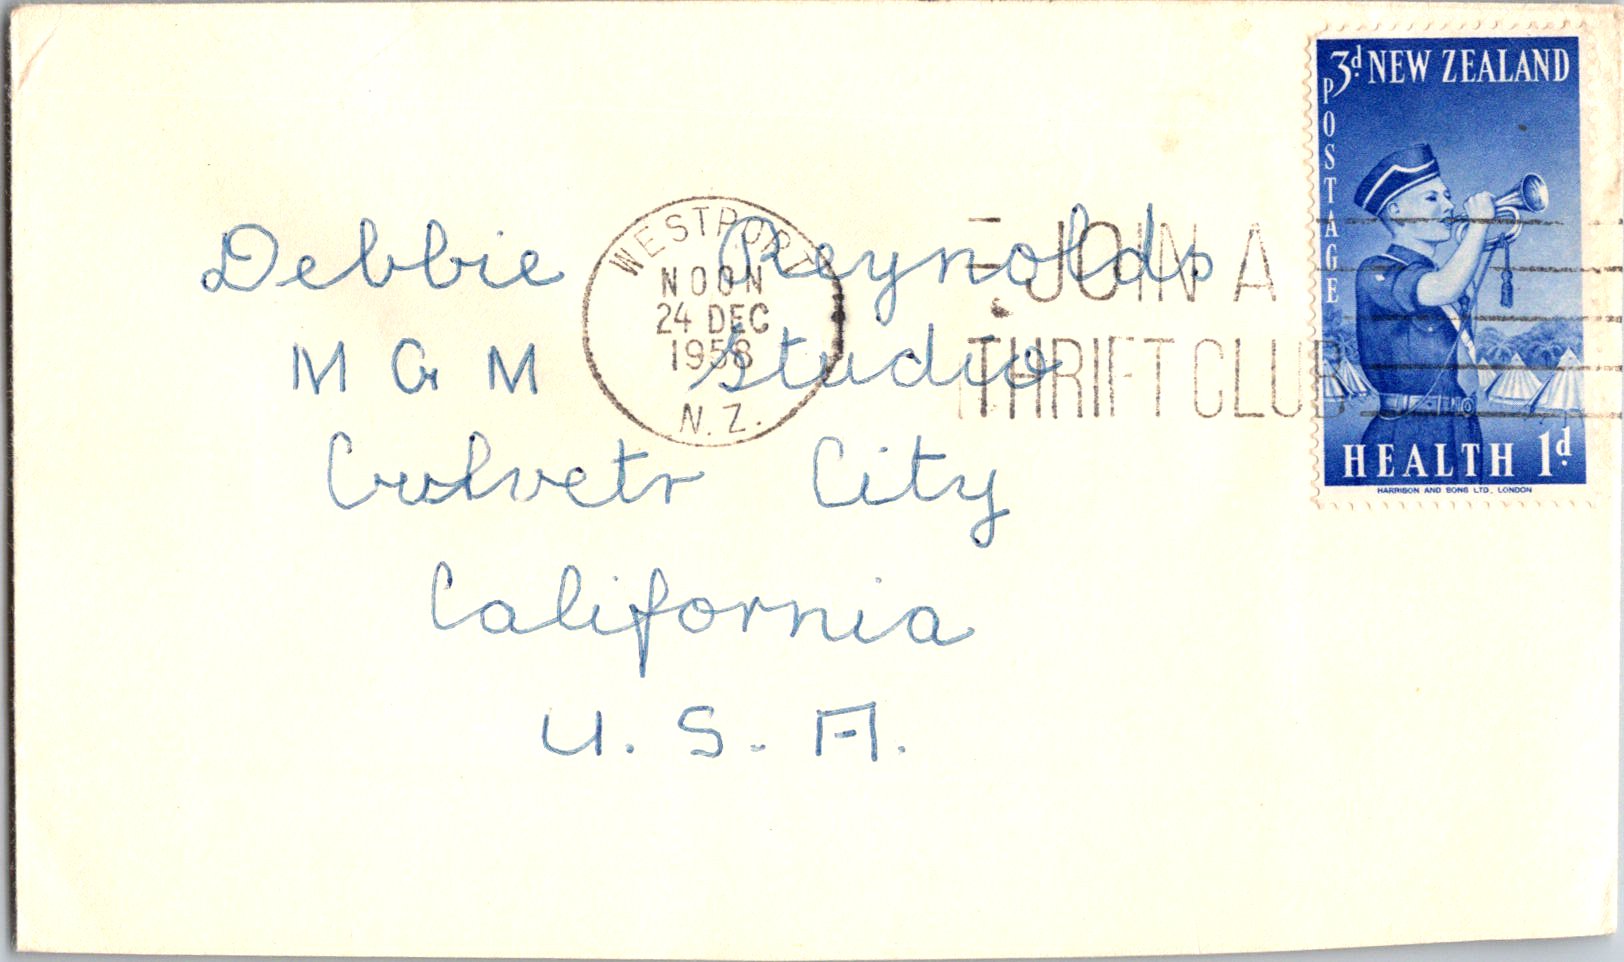 3d NEW ZEALAND
POSTAGE
HEALTH 1d
HARRISON AND SONS LTD, LONDON
WESTPORT
NOON
24 DEC
1958
N.Z.
JOIN A
THRIFT CLUB
Debbie Reynolds
M G M Studio
Culvetr City
California
U. S. A.